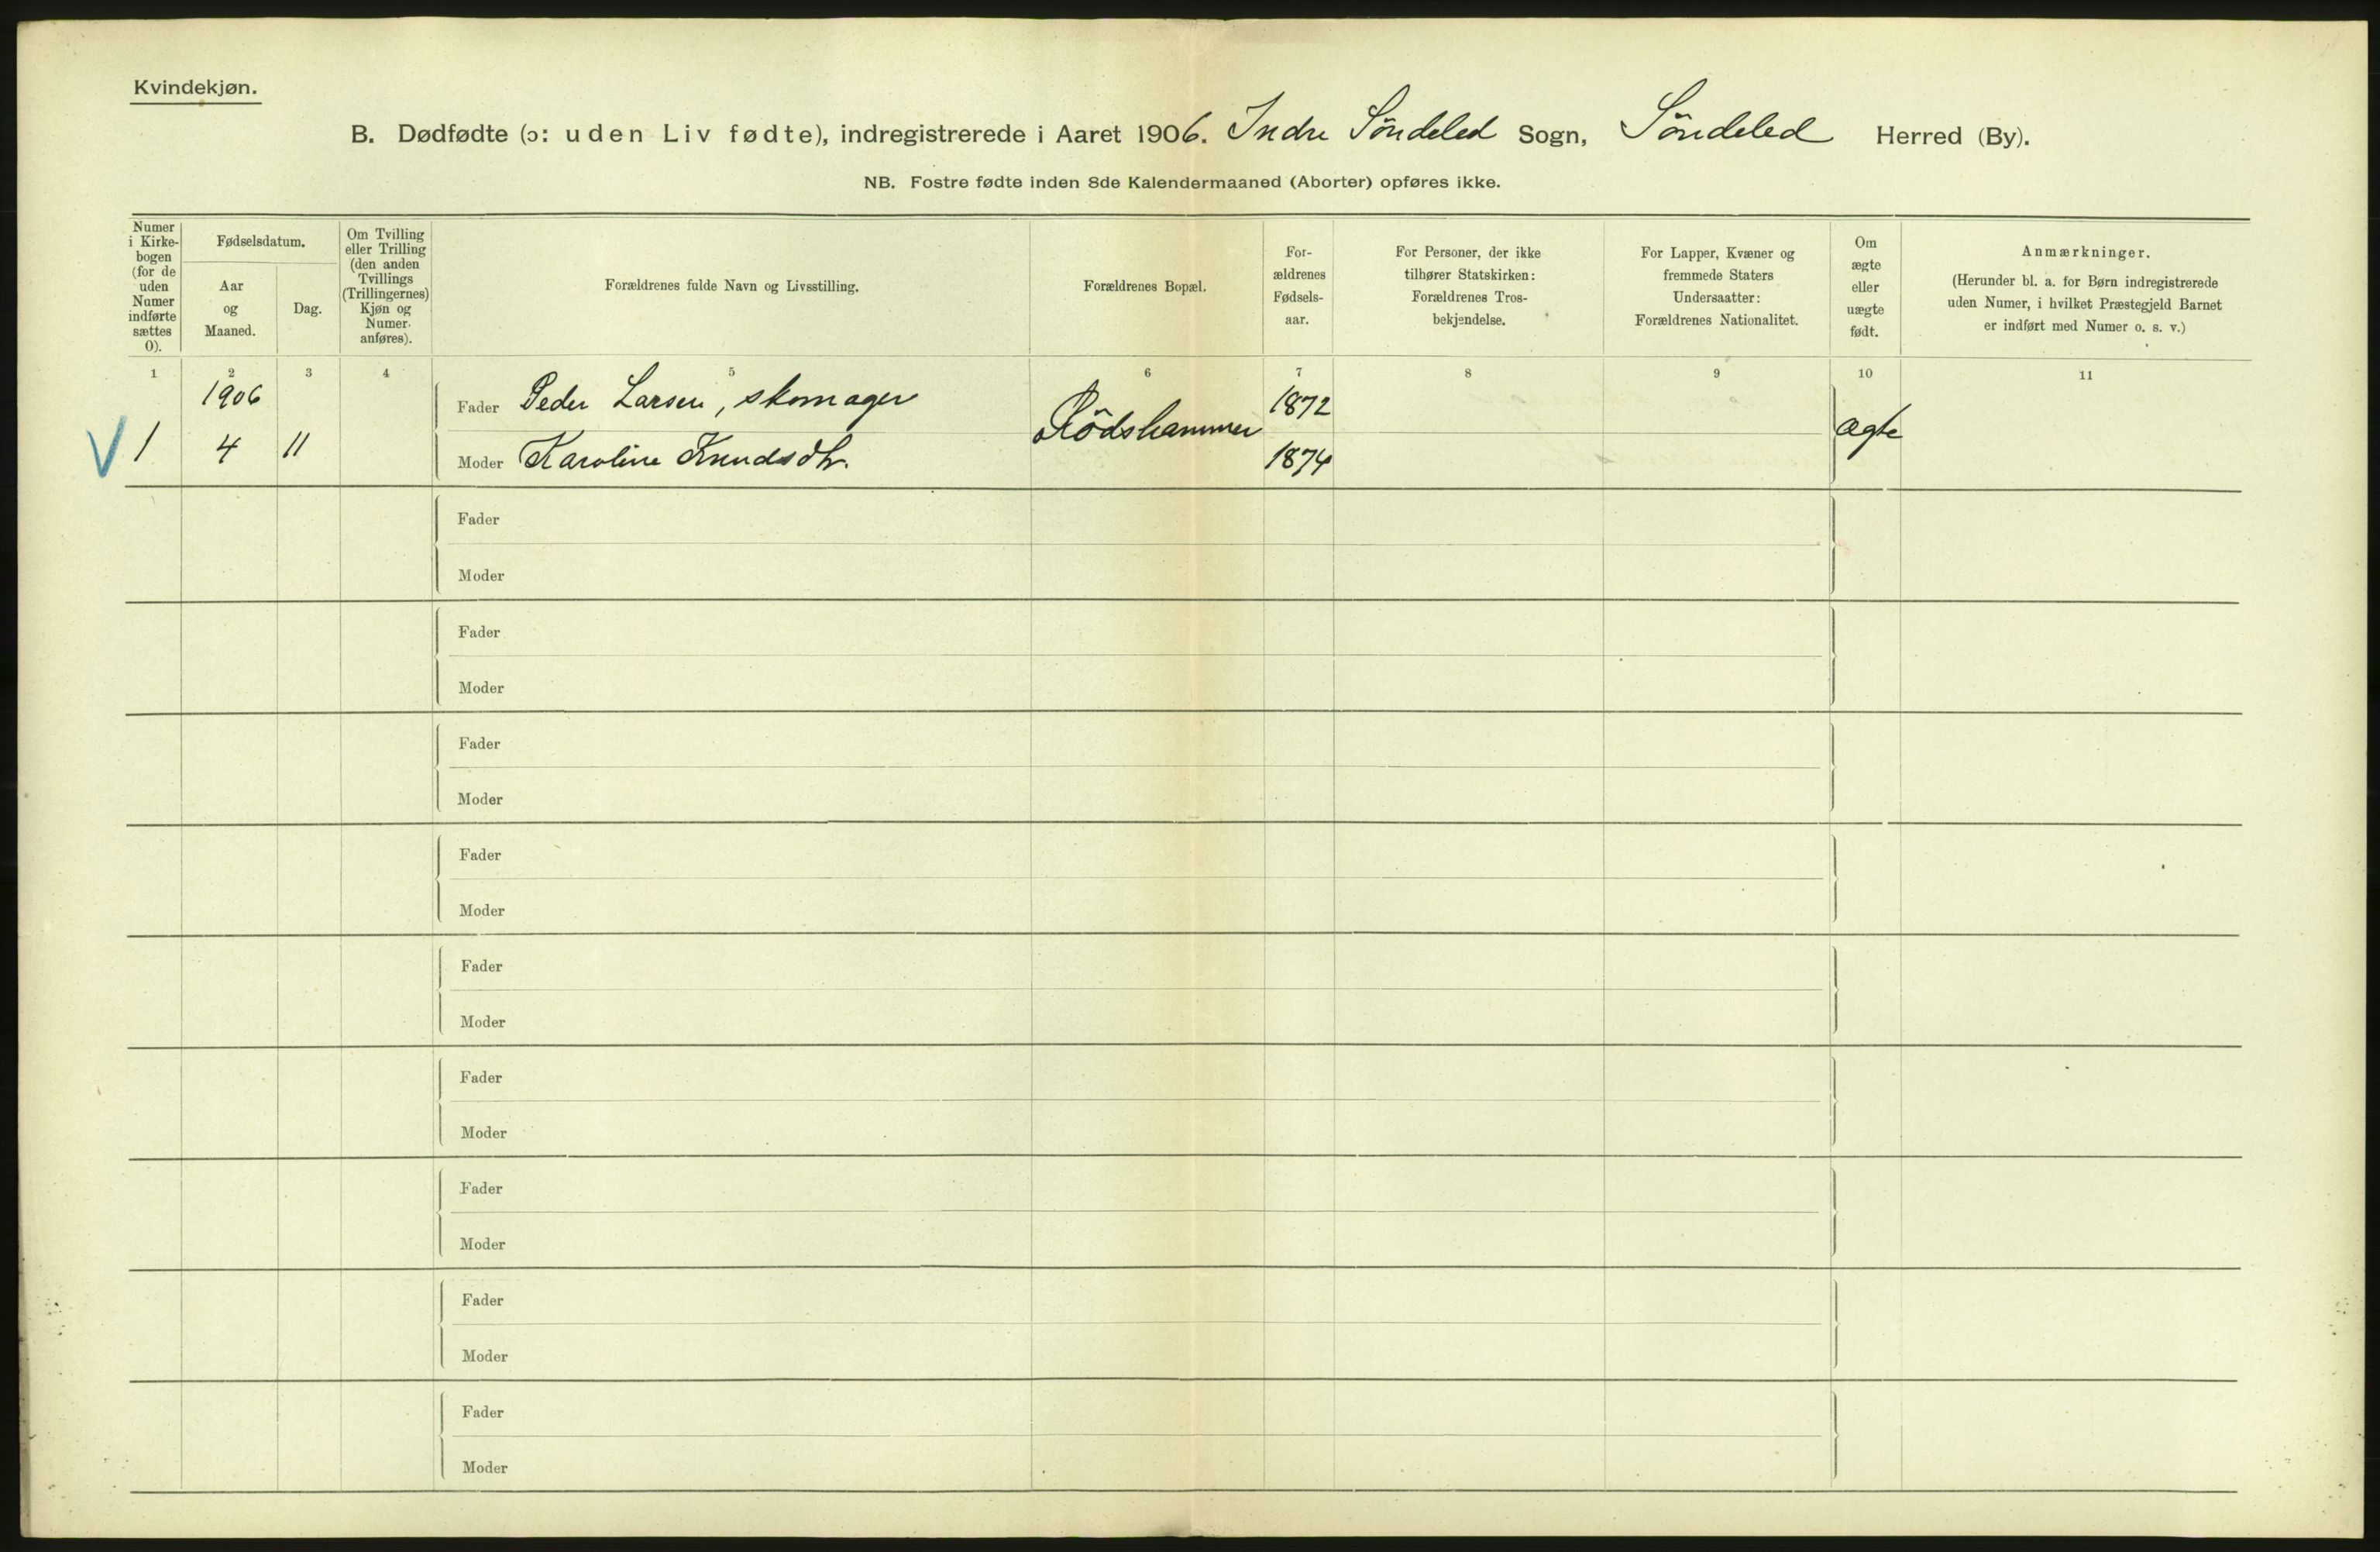 Kvindekjøn.
B. Dødfødte (ɔ: uden Liv fødte), indregistrerede i Aaret 1906. Indre Söndeled Sogn, Söndeled Herred (By).
NB. Fostre fødte inden 8de Kalendermaaned (Aborter) opføres ikke.
Numer
i Kirke-
bogen
(for de
uden
Numer
indførte
sættes
0).
Fødselsdatum.
Aar
og
Maaned.
Dag.
Om Tvilling
eller Trilling
(den anden
Tvillings
(Trillingernes)
Kjøn og
Numer
anføres).
Forældrenes fulde Navn og Livsstilling.
Forældrenes Bopæl.
For-
ældrenes
Fødsels-
aar.
For Personer, der ikke
tilhører Statskirken:
Forældrenes Tros-
bekjendelse.
For Lapper, Kvæner og
fremmede Staters
Undersaatter:
Forældrenes Nationalitet.
Om
ægte
eller
uægte
født.
Anmærkninger.
(Herunder bl. a. for Børn indregistrerede
uden Numer, i hvilket Præstegjeld Barnet
er indført med Numer o. s. v.)
1 2 3 4 5 6 7 8 9 10 11
1906
Fader Peder Larsen, skomager 1872
Rödshammer ægte
V 1 4 11 Moder Karoline Knudsdtr. 1874
Fader
Moder
Fader
Moder
Fader
Moder
Fader
Moder
Fader
Moder
Fader
Moder
Fader
Moder
Fader
Moder
Fader
Moder